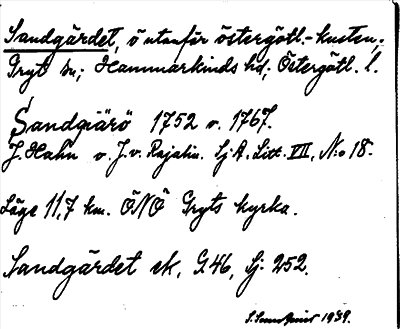 Sandgärdet, ö utanför östergötl.-kusten;
Gryt sn; Hammarkinds hd; Östergötl. l.
Sandgiärö 1752 o. 1767.
J. Hahn o. J. v. Rajalin. Sj.A. Litt. VII, N:o 18.
Läge 11,7 km. ÖNÖ Gryts kyrka.
Sandgärdet ek, G.46, Sj. 252.
1939.